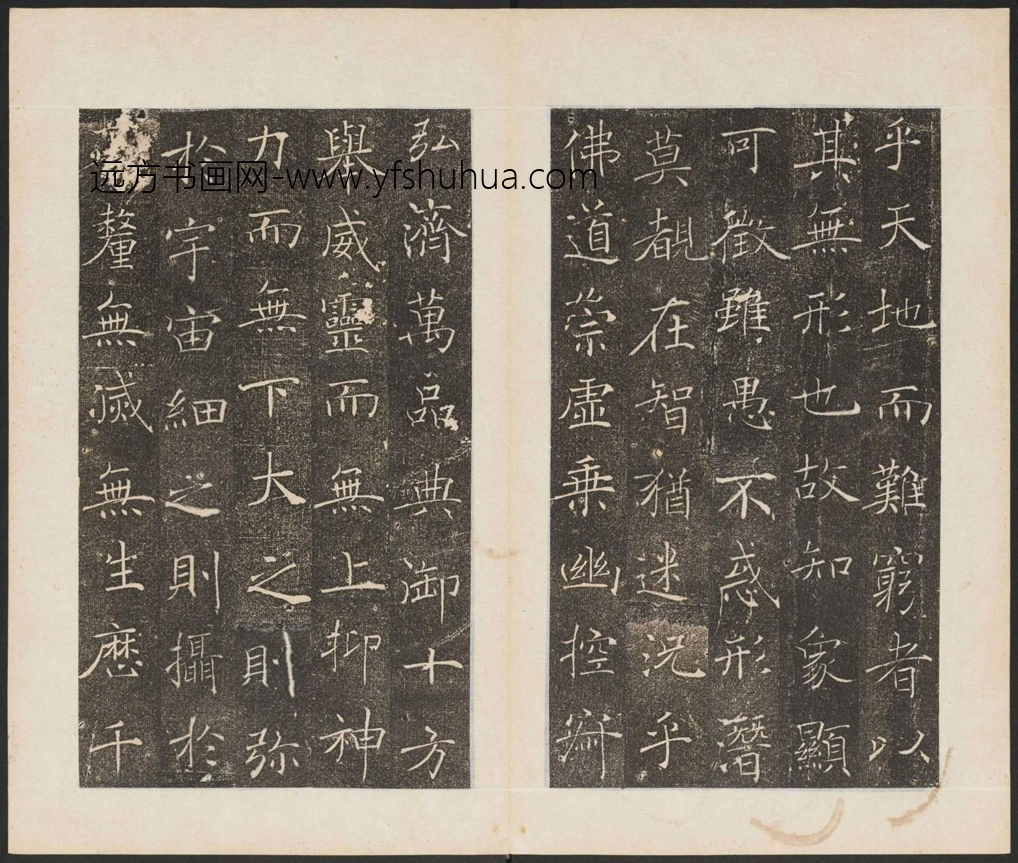 乎天地而難窮者以
其無形也故知象顯
可徵雖愚不惑形潛
莫覩在智猶迷況乎
佛道崇虛乗幽控
弘濟萬品典御十方
舉威靈而無上抑神
力而無下大之則弥
於宇宙細之則攝於
釐無滅無生歷千
远方书画网-www.yfshuhua.com